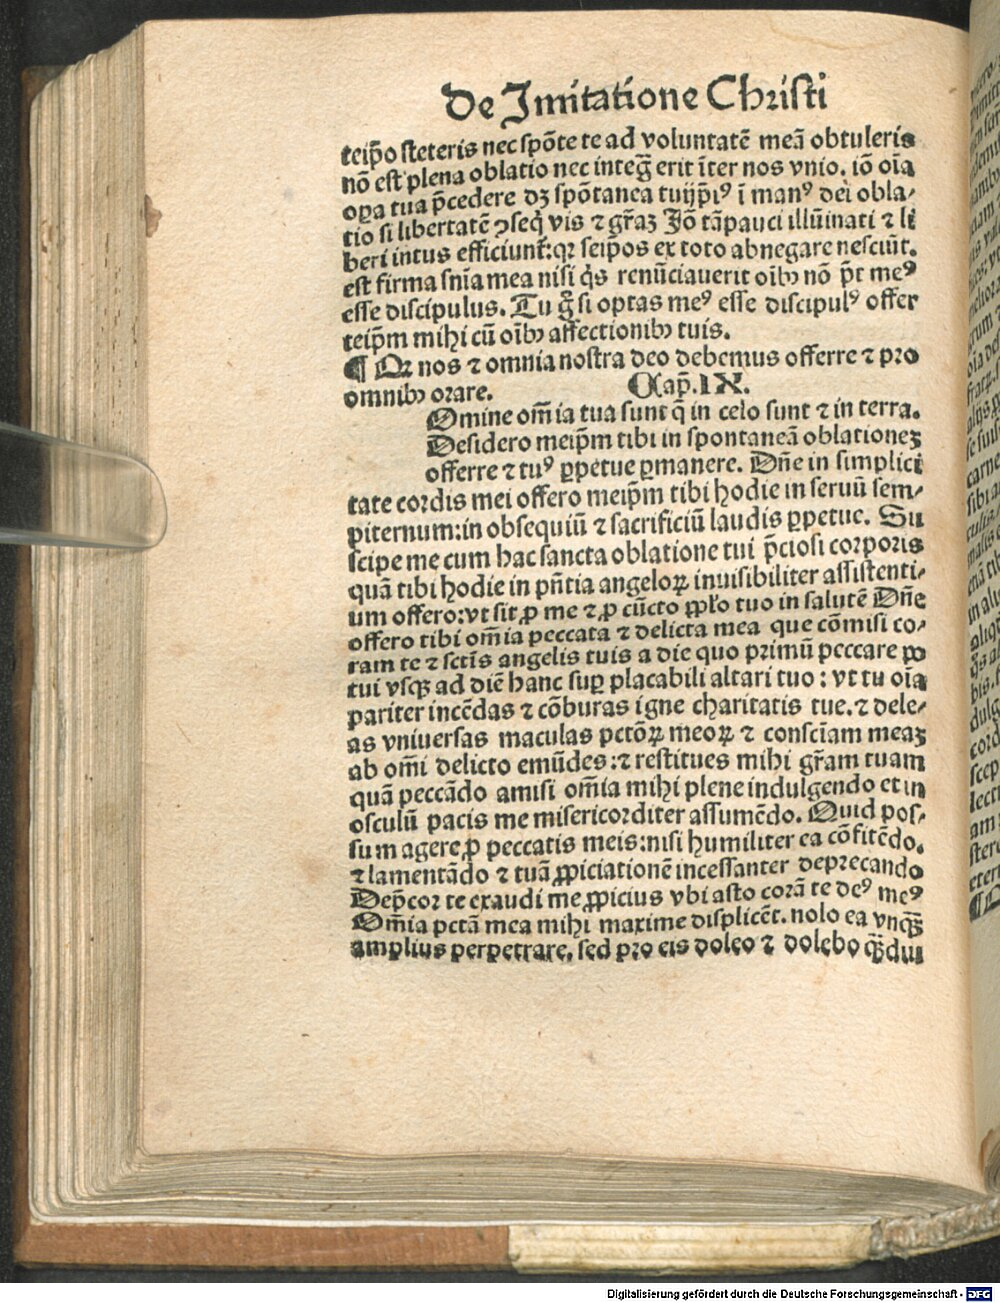 De Imitatione Christi
teip̄o steteris nec spōte te ad voluntatē meā obtuleris
nō est plena oblatio nec inteḡ erit īter nos vnio. iō oīa
oꝑa tua p̄cedere dꝫ spōtanea tuijp̄iꝰ ī manꝰ dei obla/
tio si libertatē ꝯseq̄ vis ⁊ gr̄aꝫ Jō tā pauci illūinati ⁊ li
beri intus efficiunt̄: qꝛ seip̄os ex toto abnegare nesciūt.
est firma sn̄ia mea nisi q̄s renūciauerit oībꝰ nō p̄t meꝰ
esse discipulus. Tu g̊ si optas meꝰ esse discipulꝰ offer
teip̄m mihi cū oībꝰ affectionibꝰ tuis.
¶ Qꝛ nos ⁊ omnia nostra deo debemus offerre ⁊ pro
omnibꝰ orare. Cap̄. IX.
Domine om̄ia tua sunt q̄ in celo sunt ⁊ in terra.
Desidero meip̄m tibi in spontaneā oblationeꝫ
offerre ⁊ tuꝰ ꝑpetue ꝑmanere. Dn̄e in simplici
tate cordis mei offero meip̄m tibi hodie in seruū sem/
piternum: in obsequiū ⁊ sacrificiū laudis ꝑpetue. Su
scipe me cum hac sancta oblatione tui p̄ciosi corporis
quā tibi hodie in pn̄tia angeloꝝ inuisibiliter assistenti/
um offero: vt sit ꝓ me ⁊ ꝓ cūcto ppl̄o tuo in salutē Dn̄e
offero tibi om̄ia peccata ⁊ delicta mea que cōmisi co/
ram te ⁊ sctīs angelis tuis a die quo primū peccare po
tui vsqꝫ ad diē hanc suꝑ placabili altari tuo: vt tu oīa
pariter incēdas ⁊ cōburas igne charitatis tue. ⁊ dele/
as vniuersas maculas pctōꝝ meoꝝ ⁊ consciam meaꝫ
ab om̄i delicto emūdes: ⁊ restitues mihi gr̄am tuam
quā peccādo amisi om̄ia mihi plene indulgendo et in
osculū pacis me misericorditer assumēdo. Quid pos/
sum agere ꝓ peccatis meis: nisi humiliter ea cōfitēdo.
⁊ lamentādo ⁊ tuā ꝓpiciationē incessanter deprecando
Dep̄cor te exaudi me ꝓpicius vbi asto corā te deꝰ meꝰ
Om̄ia pctā mea mihi maxime displicēt. nolo ea vnqꝫ̄
amplius perpetrare, sed pro eis doleo ⁊ dolebo qꝫ̄diu
Digitalisierung gefördert durch die Deutsche Forschungsgemeinschaft - DFG